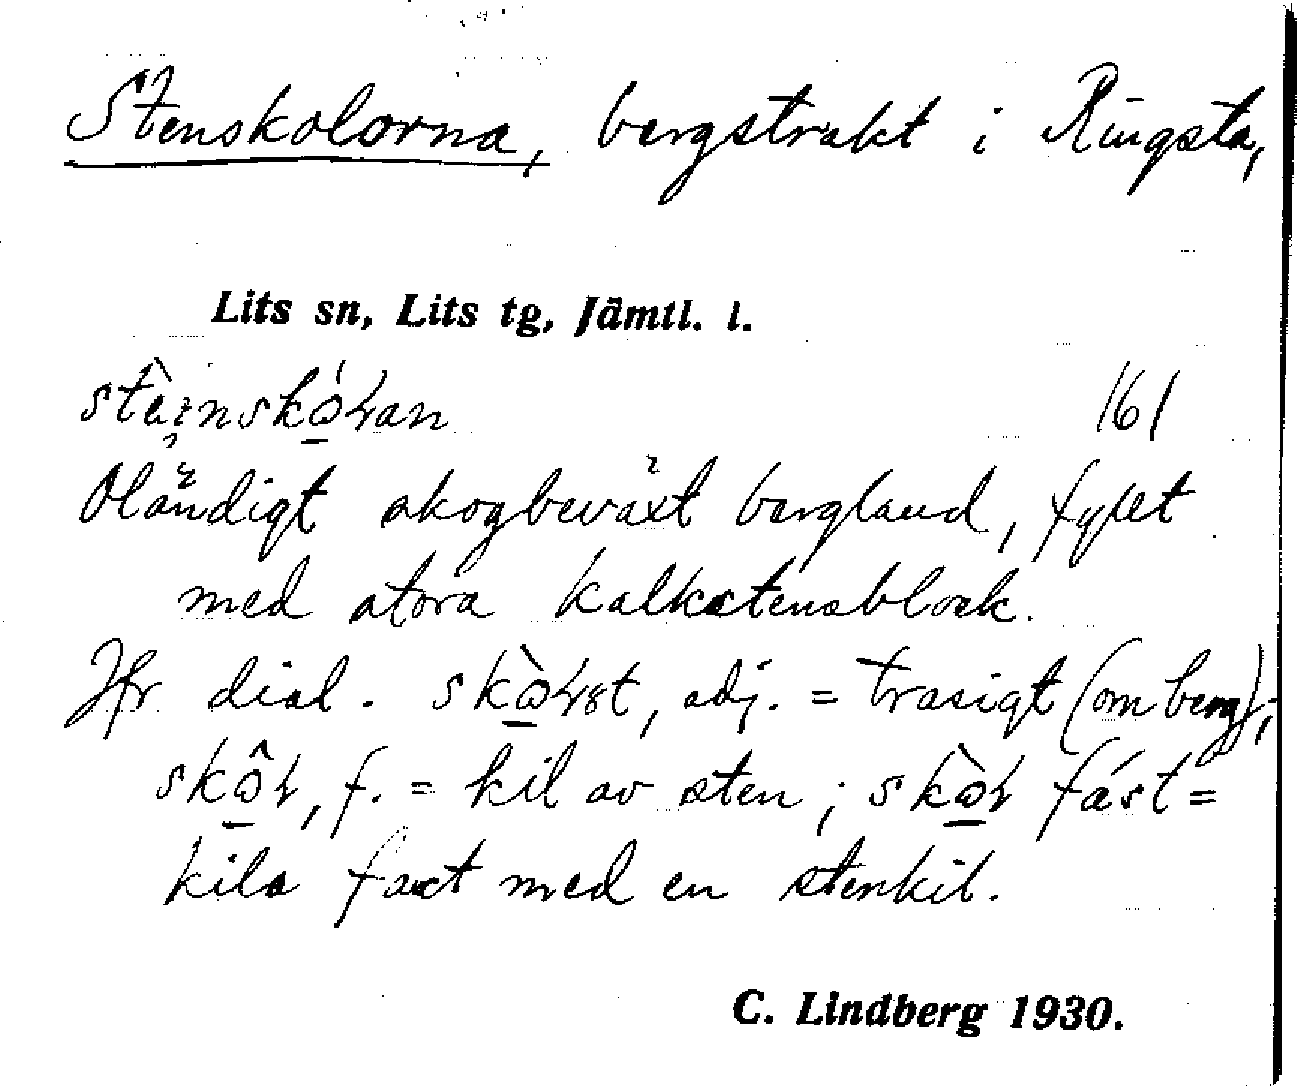 Stenskolorna, bergstrakt i Ringsta,
Lits sn, Lits tg, Jämtl. l.
161
Oländigt skogbeväxt bergland, fyllt
med stora kalkstensblock.
Jfr dial. adj. = trasigt (om berg);
f. = kil av sten; fást =
kila fast med en stenkil.
C. Lindberg 1930.